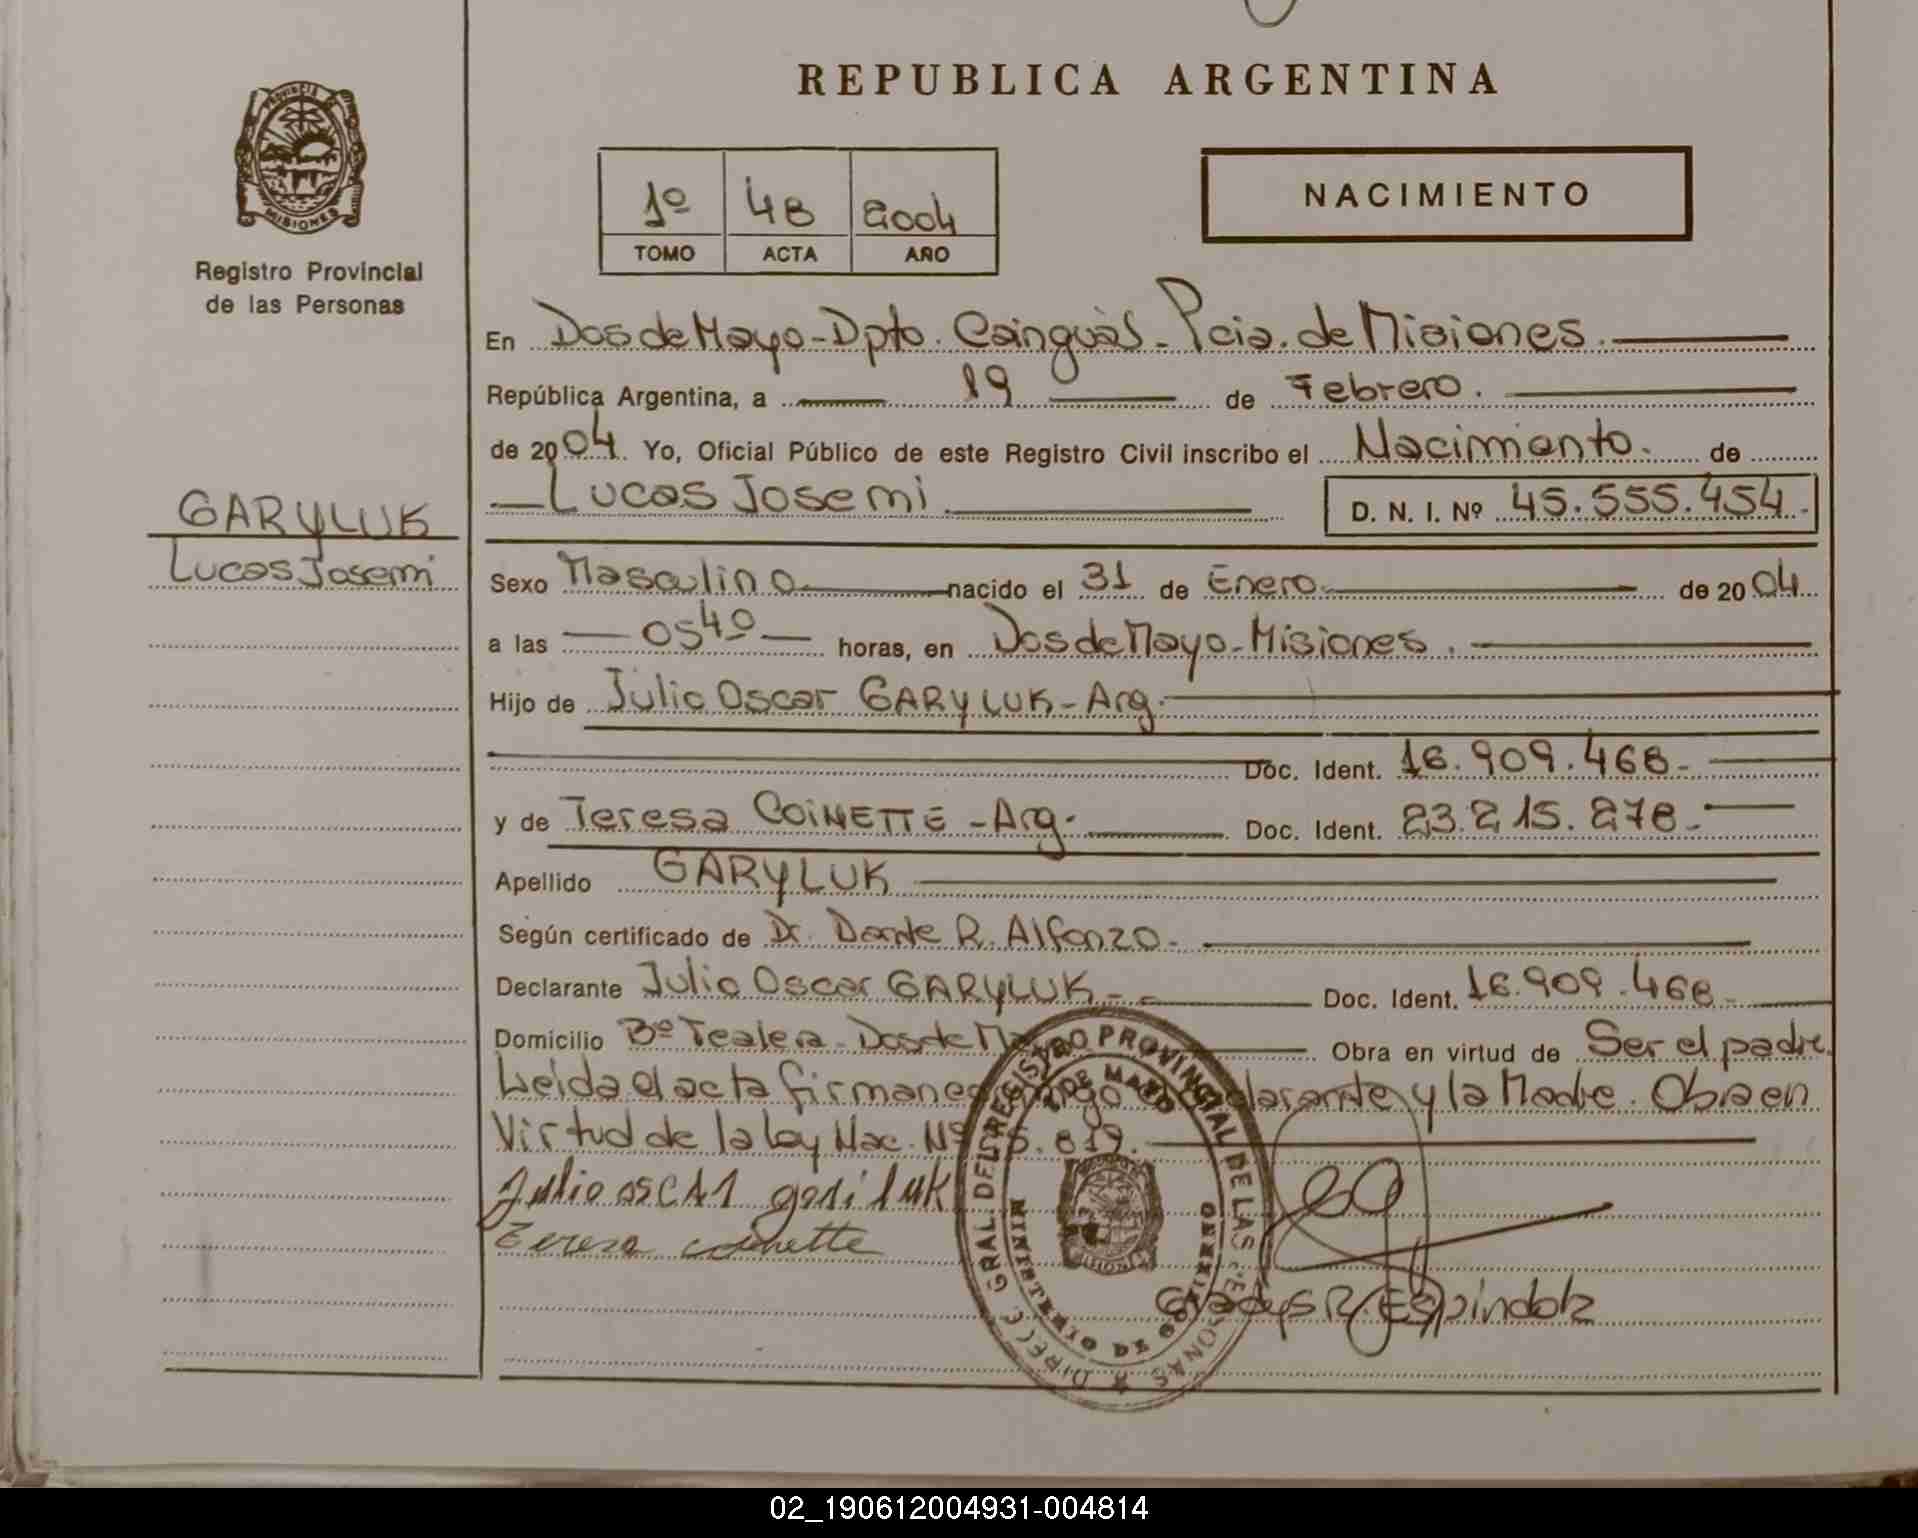 REPUBLICA ARGENTINA
PROVINCIA DE
MISIONES
Registro Provincial
de las Personas
1º 48 2004
TOMO ACTA AÑO
NACIMIENTO
En Dos de Mayo - Dpto. Cainguás - Pcia. de Misiones.
República Argentina, a 19 de Febrero.
de 2004. Yo, Oficial Público de este Registro Civil inscribo el Nacimiento. de
Lucas Josemi D. N. I. Nº 45.555.454.
GARYLUK
Lucas Josemi
Sexo Masculino nacido el 31 de Enero de 2004
a las 05 40 horas, en Dos de Mayo - Misiones.
Hijo de Julio Oscar GARYLUK - Arg.
Doc. Ident. 16.909.468.-
y de Teresa COINETTE - Arg. Doc. Ident. 23.215.278.-
Apellido GARYLUK
Según certificado de Dr. Dante R. Alfonzo.
Declarante Julio Oscar GARYLUK - Doc. Ident. 16.909.468
Domicilio Bº Tealera - Dos de Obra en virtud de Ser el padre.
Leida el acta firman declarante y la Madre. Obra en
Virtud de la ley Nac. Nº
Julio oscar gariluk
Teresa coinette
Gladys R. Espindola
DIRECC. GRAL. DEL REGISTRO PROVINCIAL DE LAS PERSONAS
2 DE MAYO
MINISTERIO DE GOBIERNO
02_190612004931-004814